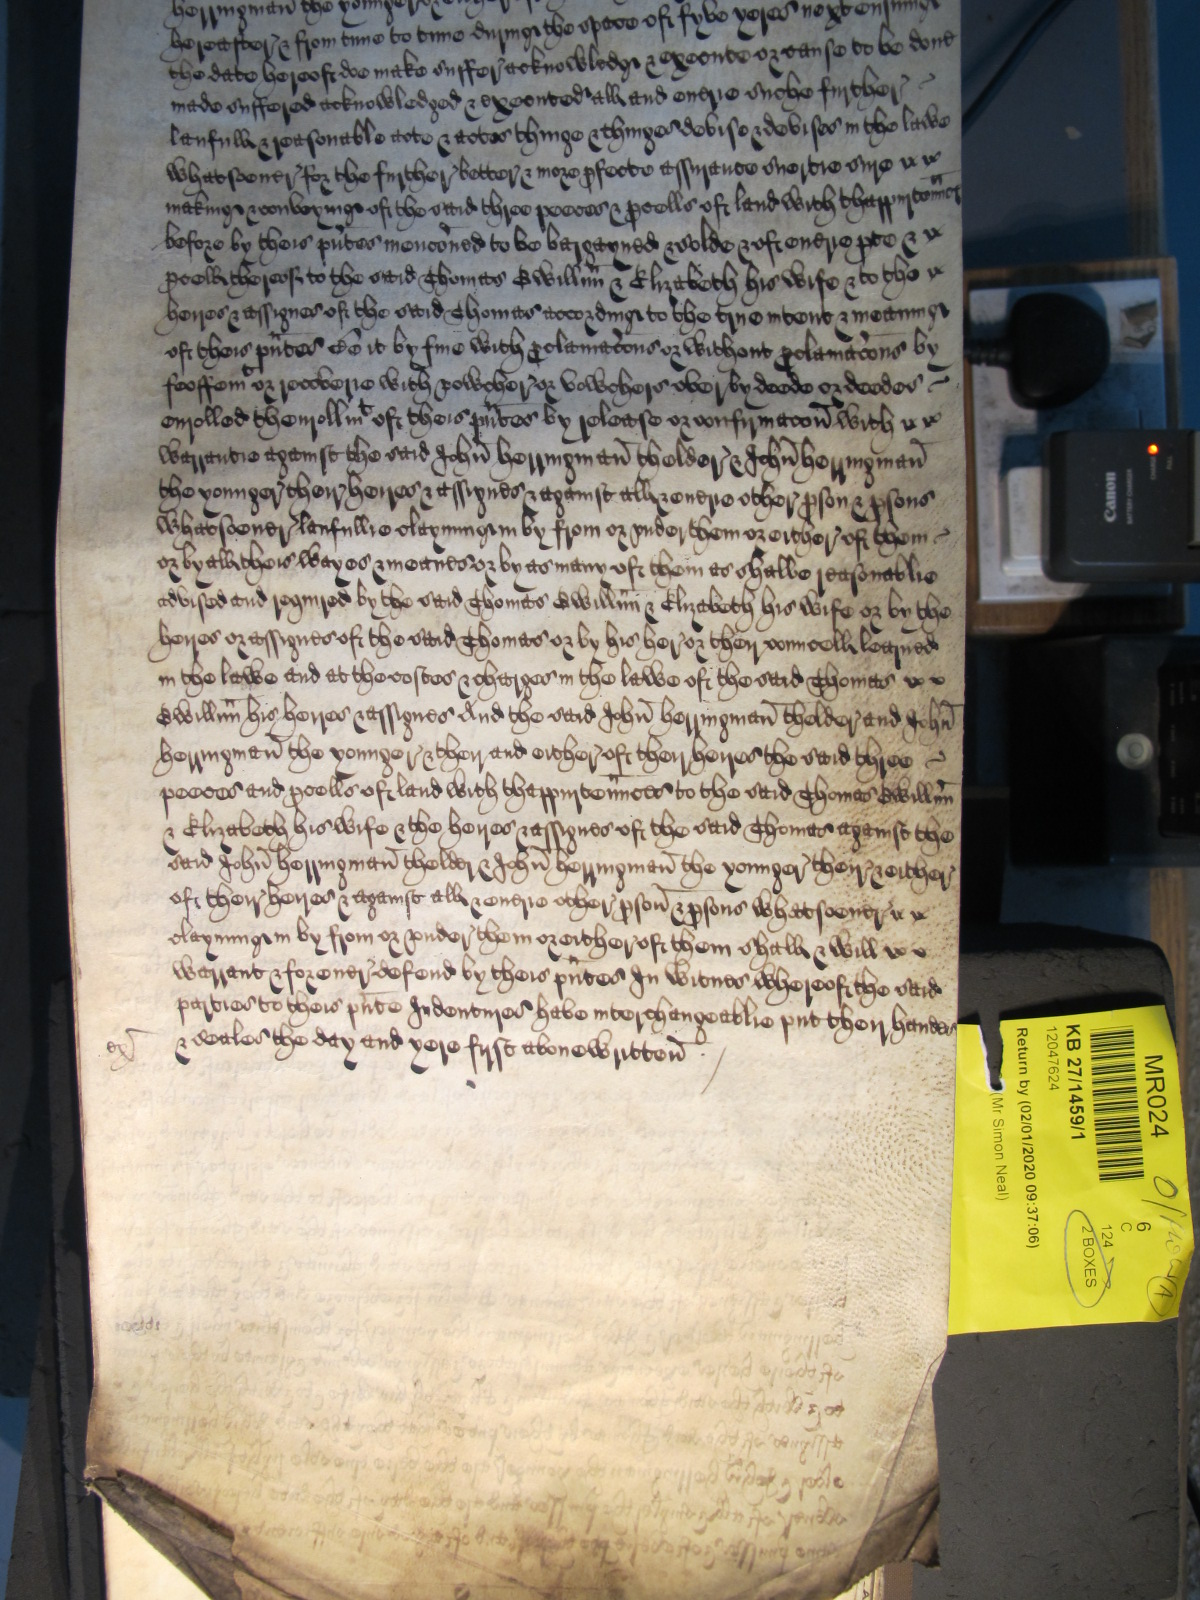 herringman the younger
hereafter & from time to time during the space of fyve yeres next ensuinge
the date hereof doe make suffer acknowledge & execute or cause to be done
made suffered acknowledged & executed all and everie suche further
laufull & reasonable acte & actes thinge & thinges devise & devises in the lawe
whatsoever for the further better & more pfecte assurance suertie sure
makinge & conveyinge of the said three peeces & pcells of land with thappurtennces
before by theis pntes menconed to be bargayned & solde & of everie pte &
pcell thereof to the said Thomas Gwillim & Elizabeth his wife & to the
heires & assignes of the said Thomas accordinge to the true intent & meaninge
of theis pntes be it by fine with pclamacons or without pclamacons by
feoffemt or recoverie with vowcher or vowchers over by deede or deedes
enrolled thenrollmt of theis pntes by release or confirmacon with
warrantie against the said John herringman thelder & John herringman
the younger their heires & assignes & against all & everie other pson & psons
whatsoever laufullie clayminge in by from or under them or either of them
or by all theis wayes & meanes or by as many of them as shalbe reasonablie
advised and required by the said Thomas Gwillim & Elizabeth his wife or by the
heires or assignes of the said Thomas or by his her or their councell learned
in the lawe and at the costes & charges in the lawe of the said Thomas
Gwillim his heires & assignes And the said John herringman thelder and John
herringman the younger & their and either of their heires the said three
peeces and pcells of land with thappurtennces to the said Thomas Gwillim
& Elizabeth his wife & the heires & assignes of the said Thomas against the
said John herringman thelder & John herringman the younger their & either
of their heires & against all & everie other pson & psons whatsoever
clayminge in by from or under them or either of them shall & will
warrant & forever defend by theis pntes In witnes whereof the said
parties to theis pnte Indentures have interchangeablie put their handes
& seales the day and yere first abovewritten
exr
Canon
BATTERY CHARGER
CHARGE
FULL
MR024
KB 27/1459/1
12047624
Return by (02/01/2020 09:37:06)
(Mr Simon Neal)
6
C
124
2 BOXES